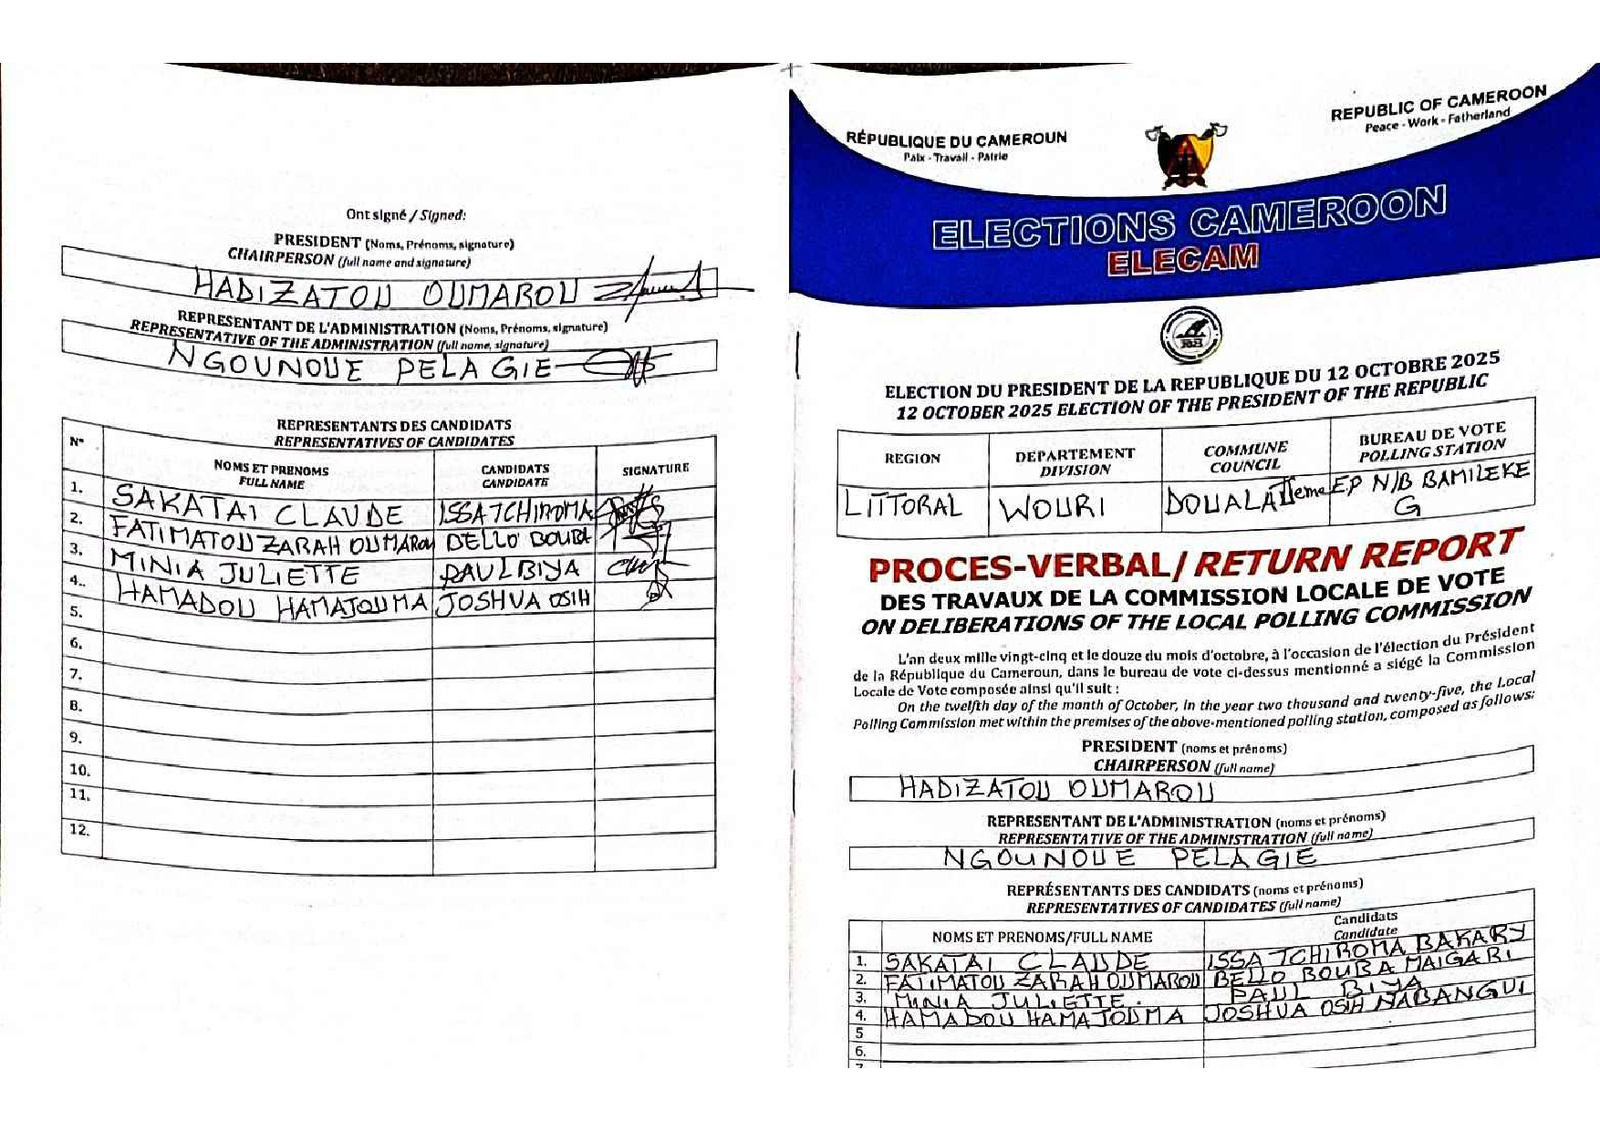 Ont signé / Signed:
PRESIDENT (Noms, Prénoms, signature)
CHAIRPERSON (full name and signature)
HADIZATOU OUMAROU
REPRESENTANT DE L'ADMINISTRATION (Noms, Prénoms, signature)
REPRESENTATIVE OF THE ADMINISTRATION (full name, signature)
NGOUNOUE PELAGIE
REPRESENTANTS DES CANDIDATS
REPRESENTATIVES OF CANDIDATES
N° NOMS ET PRENOMS CANDIDATS SIGNATURE
FULL NAME CANDIDATE
1. SAKATAI CLAUDE ISSA TCHIROMA
2. FATIMATOU ZARAH OUMAROU BELLO BOUBA
3. MINIA JULIETTE PAUL BIYA
4.. HAMADOU HAMAJOUMA JOSHUA OSIH
5.
6.
7.
8.
9.
10.
11.
12.
RÉPUBLIQUE DU CAMEROUN
Paix - Travail - Patrie
REPUBLIC OF CAMEROON
Peace - Work - Fatherland
ELECTIONS CAMEROON
ELECAM
ELECTION DU PRESIDENT DE LA REPUBLIQUE DU 12 OCTOBRE 2025
12 OCTOBER 2025 ELECTION OF THE PRESIDENT OF THE REPUBLIC
REGION DEPARTEMENT COMMUNE BUREAU DE VOTE
DIVISION COUNCIL POLLING STATION
LITTORAL WOURI DOUALA IIeme EP N/B BAMILEKE
G
PROCES-VERBAL/ RETURN REPORT
DES TRAVAUX DE LA COMMISSION LOCALE DE VOTE
ON DELIBERATIONS OF THE LOCAL POLLING COMMISSION
L'an deux mille vingt-cinq et le douze du mois d'octobre, à l'occasion de l'élection du Président
de la République du Cameroun, dans le bureau de vote ci-dessus mentionné a siégé la Commission
Locale de Vote composée ainsi qu'il suit :
On the twelfth day of the month of October, in the year two thousand and twenty-five, the Local
Polling Commission met within the premises of the above-mentioned polling station, composed as follows:
PRESIDENT (noms et prénoms)
CHAIRPERSON (full name)
HADIZATOU OUMAROU
REPRESENTANT DE L'ADMINISTRATION (noms et prénoms)
REPRESENTATIVE OF THE ADMINISTRATION (full name)
NGOUNOUE PELAGIE
REPRÉSENTANTS DES CANDIDATS (noms et prénoms)
REPRESENTATIVES OF CANDIDATES (full name)
NOMS ET PRENOMS/FULL NAME Candidats
Candidate
1. SAKATAI CLAUDE ISSA TCHIROMA BAKARY
2. FATIMATOU ZARAH OUMAROU BELLO BOUBA MAIGARI
3. MINIA JULIETTE. PAUL BIYA
4. HAMADOU HAMAJOUMA JOSHUA OSIH NABANGUI
5
6.